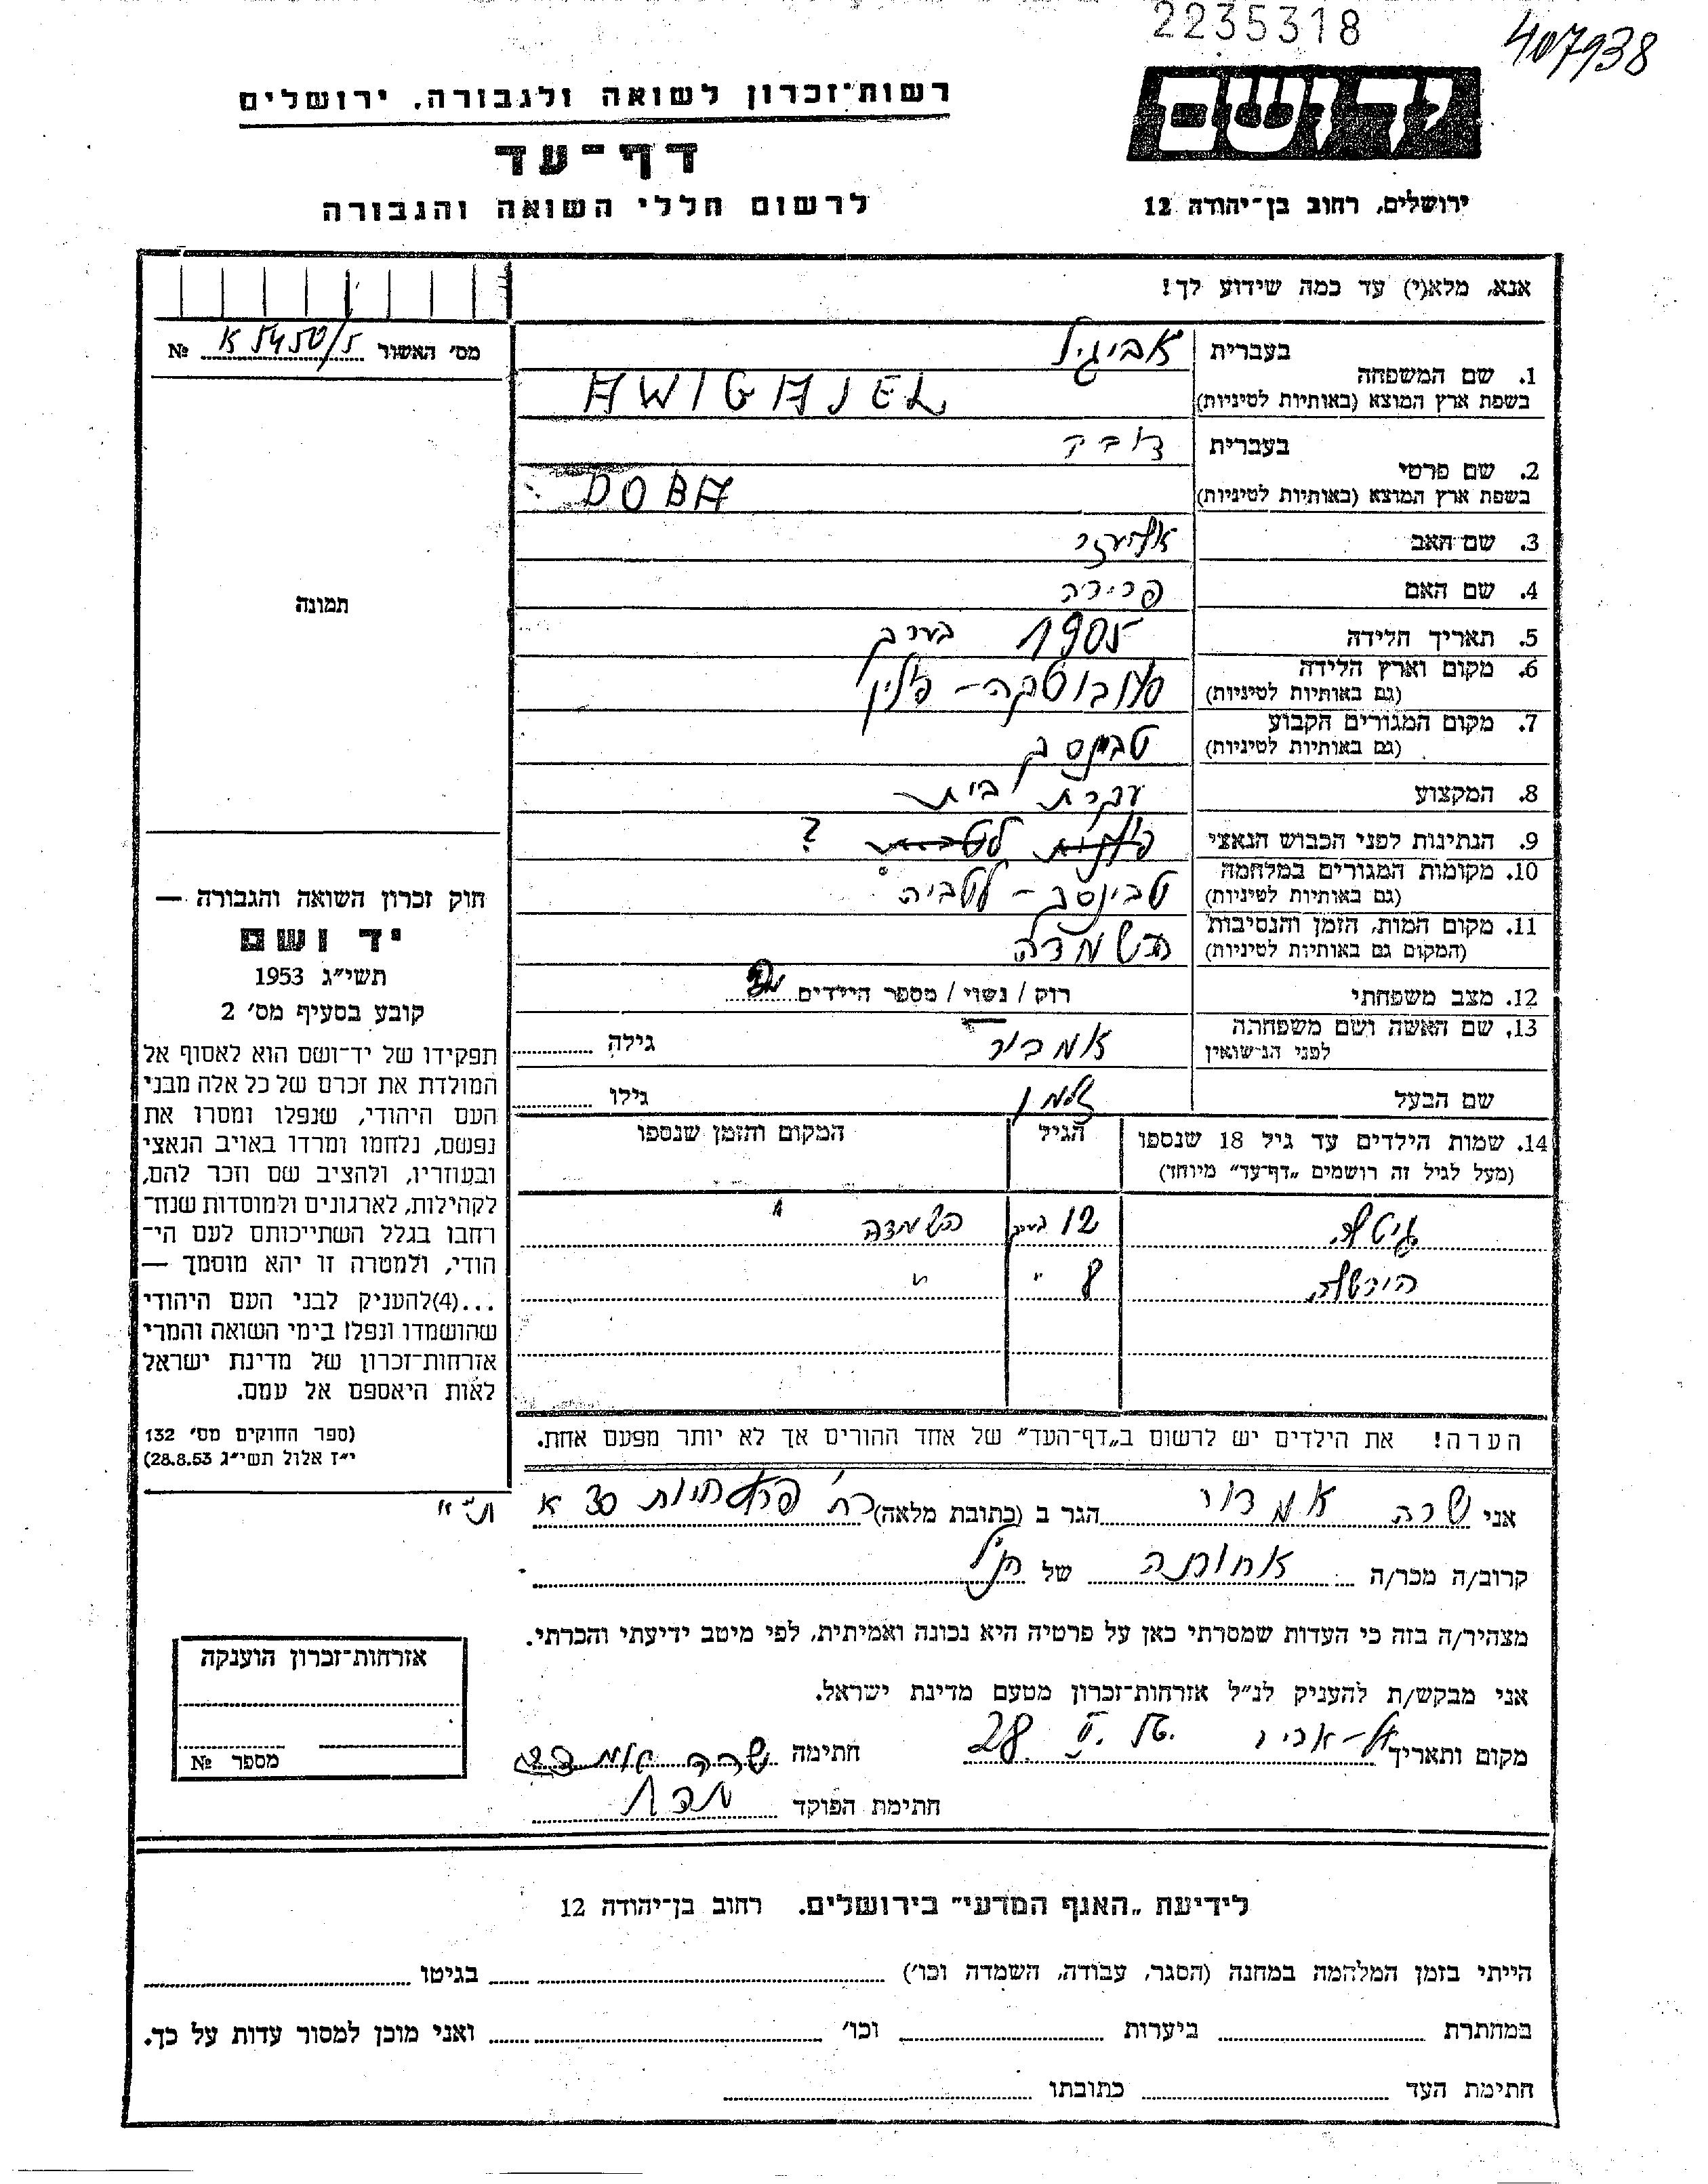 2235318
407938
יד ושם
רשות־זכרון לשואה ולגבורה, ירושלים
דף־עד
לרשום חללי השואה והגבורה
ירושלים, רחוב בן־יהודה 12
אנא, מלא(י) עד כמה שידוע לך!
מס׳ האשור № א 5450/5
1. שם המשפחה
בעברית אביגיל
בשפת ארץ המוצא (באותיות לטיניות) AWIGAJEL
2. שם פרטי
בעברית
בשפת ארץ המוצא (באותיות לטיניות) DOBA
3. שם האב אליעזר
4. שם האם פרידה
5. תאריך הלידה 1905 בערך
6. מקום וארץ הלידה
(גם באותיות לטיניות) פולין
7. מקום המגורים הקבוע
(גם באותיות לטיניות) דבינסק
8. המקצוע עקרת בית
9. הנתינות לפני הכבוש הנאצי ?
10. מקומות המגורים במלחמה
(גם באותיות לטיניות) דבינסק – לטביה
11. מקום המות, הזמן והנסיבות
(המקום גם באותיות לטיניות) השמדה
12. מצב משפחתי רוק / נשוי / מספר הילדים
13. שם האשה ושם משפחתה
לפני הנישואין גילה
שם הבעל זלמן גילו
14. שמות הילדים עד גיל 18 שנספו
(מעל לגיל זה רושמים „דף־עד״ מיוחד)
הגיל
המקום והזמן שנספו
גיטל 12 בערך השמדה
8 " "
הערה! את הילדים יש לרשום ב„דף־העד״ של אחד ההורים אך לא יותר מפעם אחת.
תמונה
חוק זכרון השואה והגבורה —
יד ושם
תשי״ג 1953
קובע בסעיף מס׳ 2
תפקידו של יד־ושם הוא לאסוף אל
המולדת את זכרם של כל אלה מבני
העם היהודי, שנפלו ומסרו את
נפשם, נלחמו ומרדו באויב הנאצי
ובעוזריו, ולהציב שם וזכר להם,
לקהילות, לארגונים ולמוסדות שנח־
רחבו בגלל השתייכותם לעם הי־
הודי, ולמטרה זו יהא מוסמך —
...(4)להעניק לבני העם היהודי
שהושמדו ונפלו בימי השואה והמרי
אזרחות־זכרון של מדינת ישראל
לאות היאספם אל עמם.
(ספר החוקים מס׳ 132
י״ז אלול תשי״ג 28.8.53)
אני שרה הגר ב (כתובת מלאה) רח׳ 30 א ת״א
קרוב/ה מכר/ה אחותה של הנ״ל
מצהיר/ה בזה כי העדות שמסרתי כאן על פרטיה היא נכונה ואמיתית, לפי מיטב ידיעתי והכרתי.
אני מבקש/ת להעניק לנ״ל אזרחות־זכרון מטעם מדינת ישראל.
מקום ותאריך תל־אביב 28 חתימה שרה
חתימת הפוקד
אזרחות־זכרון הוענקה
מספר №
לידיעת „האגף המדעי״ בירושלים. רחוב בן־יהודה 12
הייתי בזמן המלחמה במחנה (הסגר, עבודה, השמדה וכו׳) בגיטו
במחתרת ביערות וכו׳ ואני מוכן למסור עדות על כך.
חתימת העד כתובתו